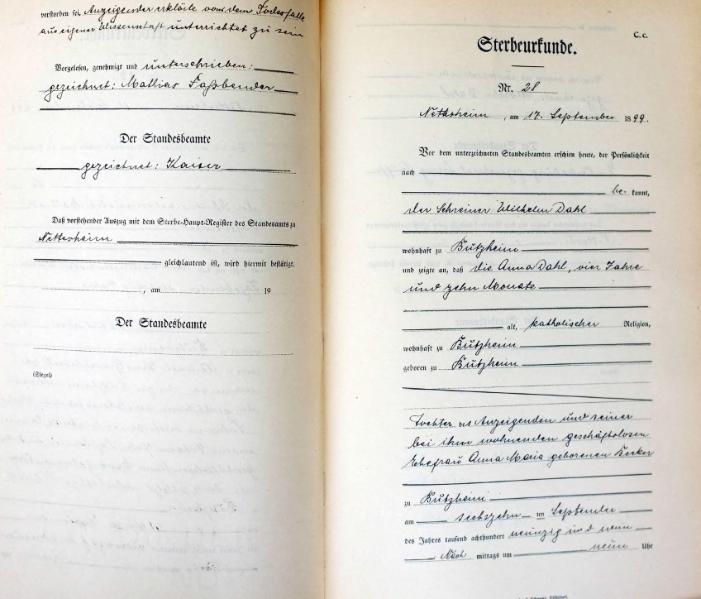 verstorben sei. Anzeigender erklärte von dem Todesfalle
aus eigener Wissenschaft unterrichtet zu sein
Vorgelesen, genehmigt und unterschrieben:
gezeichnet: Mathias Faßbender
Der Standesbeamte
gezeichnet: Kaiser
Daß vorstehender Auszug mit dem Sterbe-Haupt-Register des Standesamts zu
Nettersheim
gleichlautend ist, wird hiermit bestätigt.
, am 19
Der Standesbeamte
(Siegel)
C.c.
Sterbeurkunde.
Nr. 28
am 17. September 1899.
Vor dem unterzeichneten Standesbeamten erschien heute, der Persönlichkeit
nach
be kannt,
der Schreiner Wilhelm Dahl
wohnhaft zu Bützheim
und zeigte an, daß die Anna Dahl, vier Jahre
und zehn Monate
alt, katholischer Religion,
wohnhaft zu Bützheim
geboren zu Bützheim
Tochter des Anzeigenden und seiner
bei ihm wohnenden geschäftslosen
Ehefrau Anna Maria geborenen
zu Bützheim
am sechszehn ten September
des Jahres tausend achthundert neunzig und neun
Nach mittags um neun Uhr